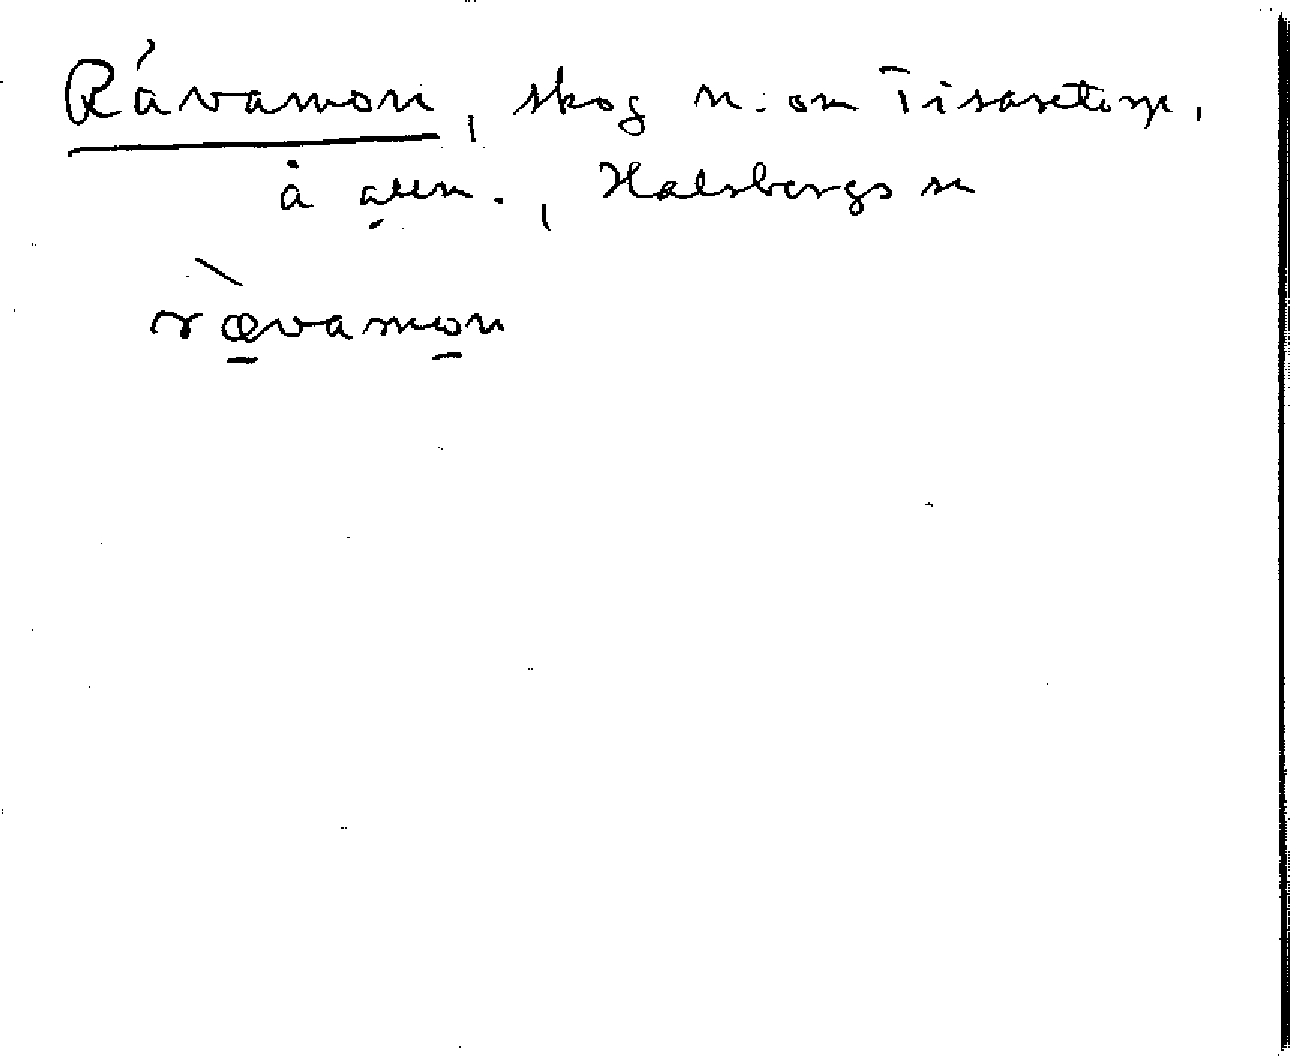 Råvamon, skog n. om Tisaretorp,
å allm., Halsbergs sn
rævamon